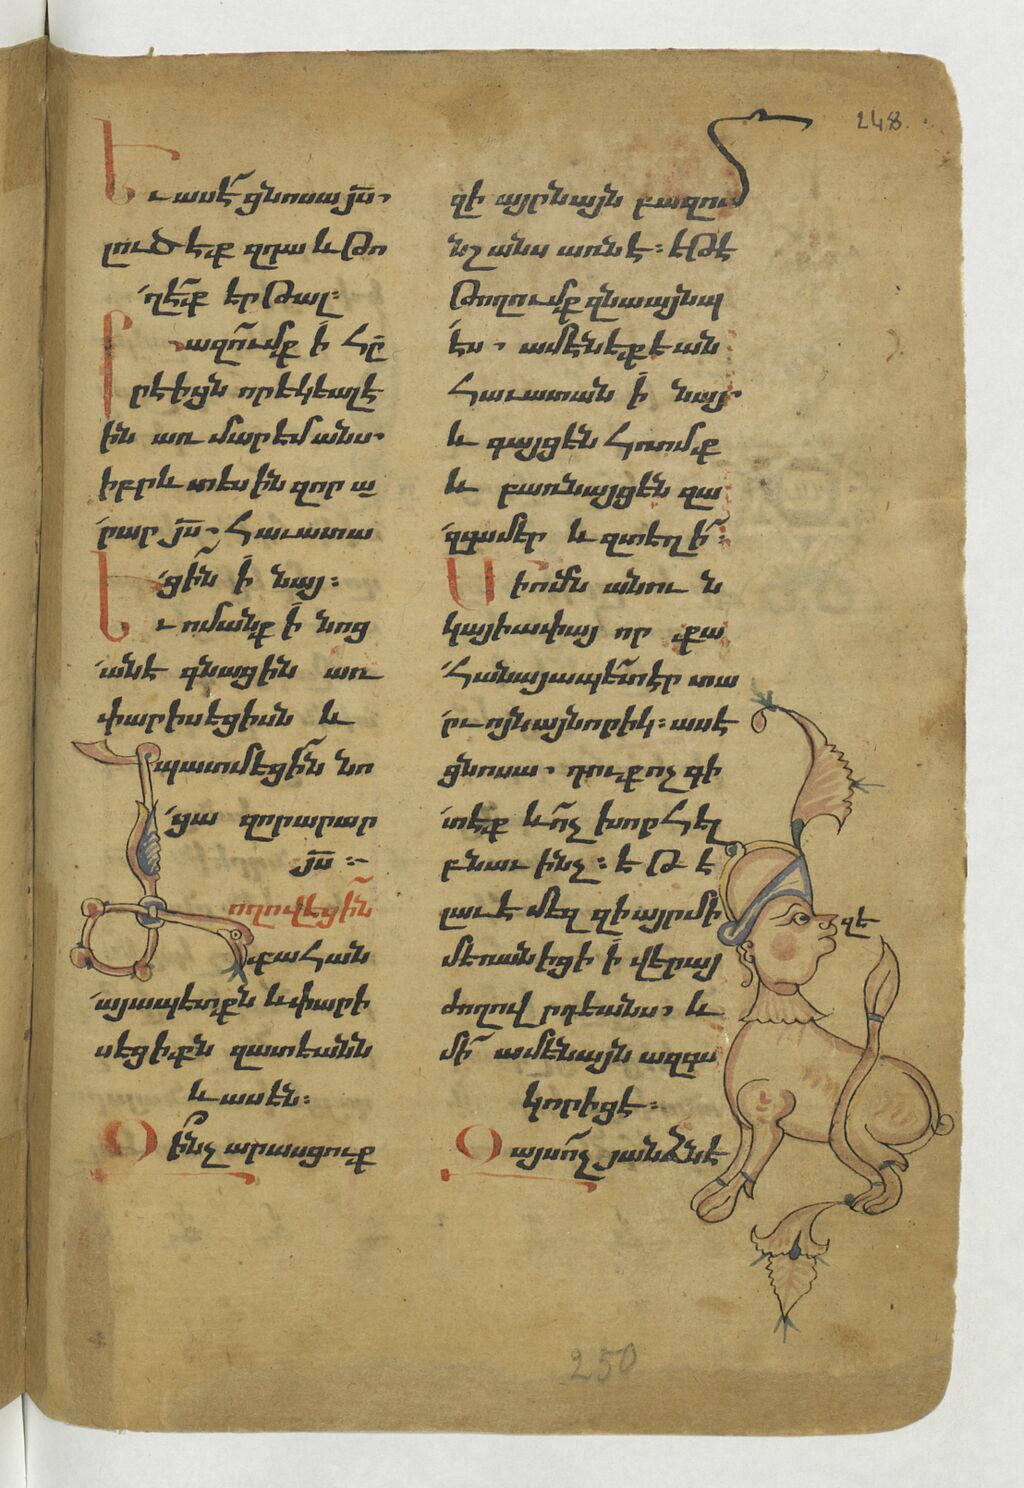 248
Եւ ասէ ցնոսա յս.
լուծէք զդա և թո
ղէք երթալ:
Բազումք ի հր
րէիցն որ եկեալ է
ին առ մարեմանս.
իբրև տեսին զոր ա
րար յս. հաւատա
ցին ի նայ:
Եւ ոմանք ի նոց
անէ գնացին առ
փարիսեցիսն և
պատմեցին նո
ցա զոր արար
յս:
Ժողովեցին
քահան
այապետքն և փարի
սեցիքն զատեանն
և ասեն:
Զինչ արասցուք
զի այրն այն բազում
նշանս առնէ: եթէ
թողումք զնա այնպ
էս. ամենեքեան
հաւատան ի նայ.
և գայցեն հռոմք
և բառնայցեն զա
զգս մեր և զտեղի:
Մի ոմն անուն
կայիափայ որ քա
հանայապետ էր տա
րւոյն այնորիկ: ասէ
ցնոսա. դուք ոչ գի
տէք և ոչ խորհել
բնաւ ինչ: եթէ
լաւ է մեզ զի այր մի
մեռանիցի ի վերայ
ժողովրդեանս. և
մի ամենայն ազգս
կորիցէ:
Զայս ոչ յանձնէ
վե
250